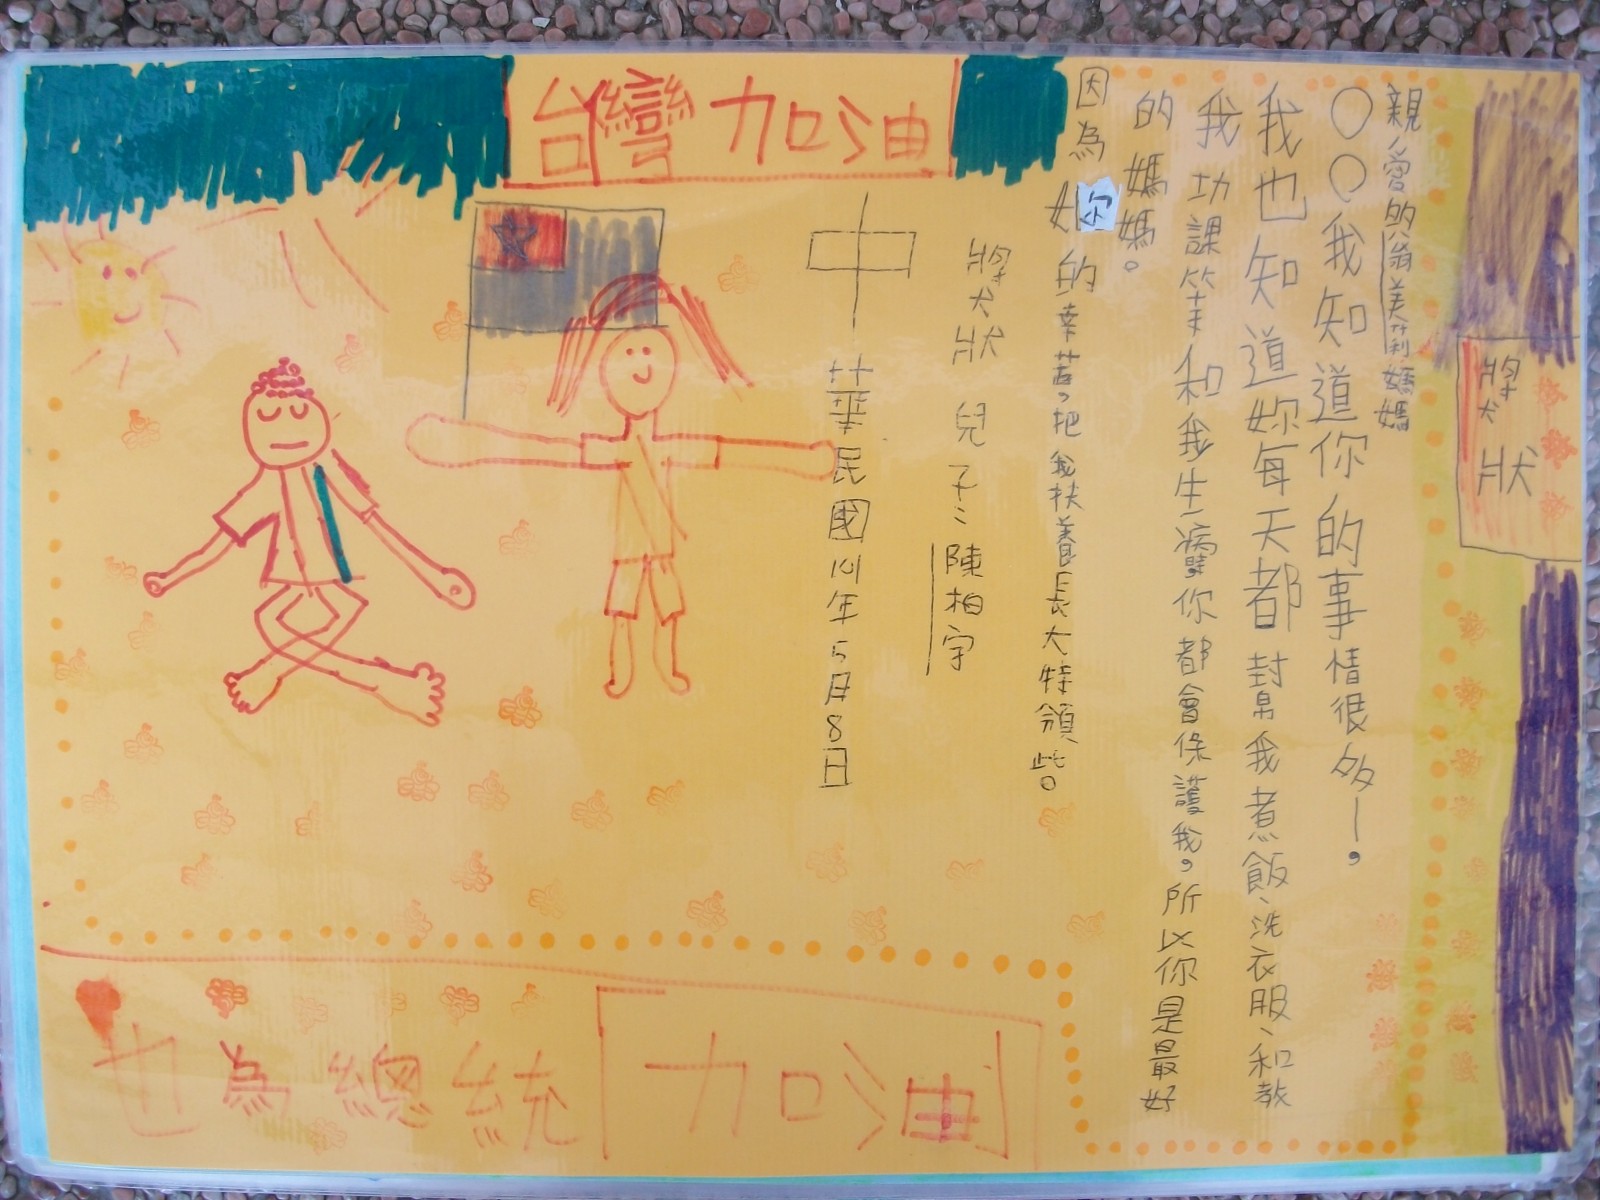 獎狀
親愛的翁美莉媽媽
○○我知道你的事情很多—，
我也知道妳每天都幫我煮飯、洗衣服、和教
我功課等和我生病你都會保護我。所以你是最好
的媽媽。
因為你的辛苦。把我扶養長大特頒此。
獎狀 兒子:陳柏宇
中華民國101年5月8日
台灣加油
也為總統加油